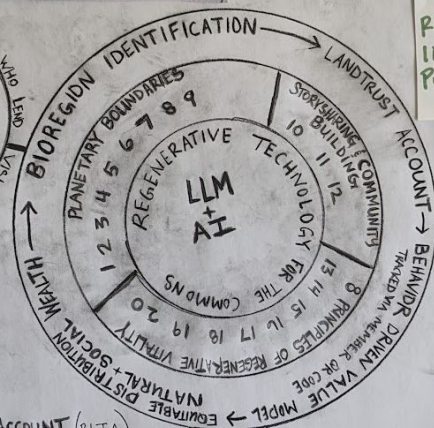 BIOREGION IDENTIFICATION → LANDTRUST ACCOUNT → BEHAVIOR DRIVEN VALUE MODEL → EQUITABLE DISTRIBUTION WEALTH →
TRACKED VIA MEMBER QR CODE
NATURAL + SOCIAL
PLANETARY BOUNDARIES
1 2 3 4 5 6 7 8 9
STORYSHARING & COMMUNITY
BUILDING
10 11 12
8 PRINCIPLES OF REGENERATIVE VITALITY
13 14 15 16 17 18 19 20
REGENERATIVE TECHNOLOGY FOR THE COMMONS
LLM
+
AI
WHO LEND
ACCOUNT
R
P